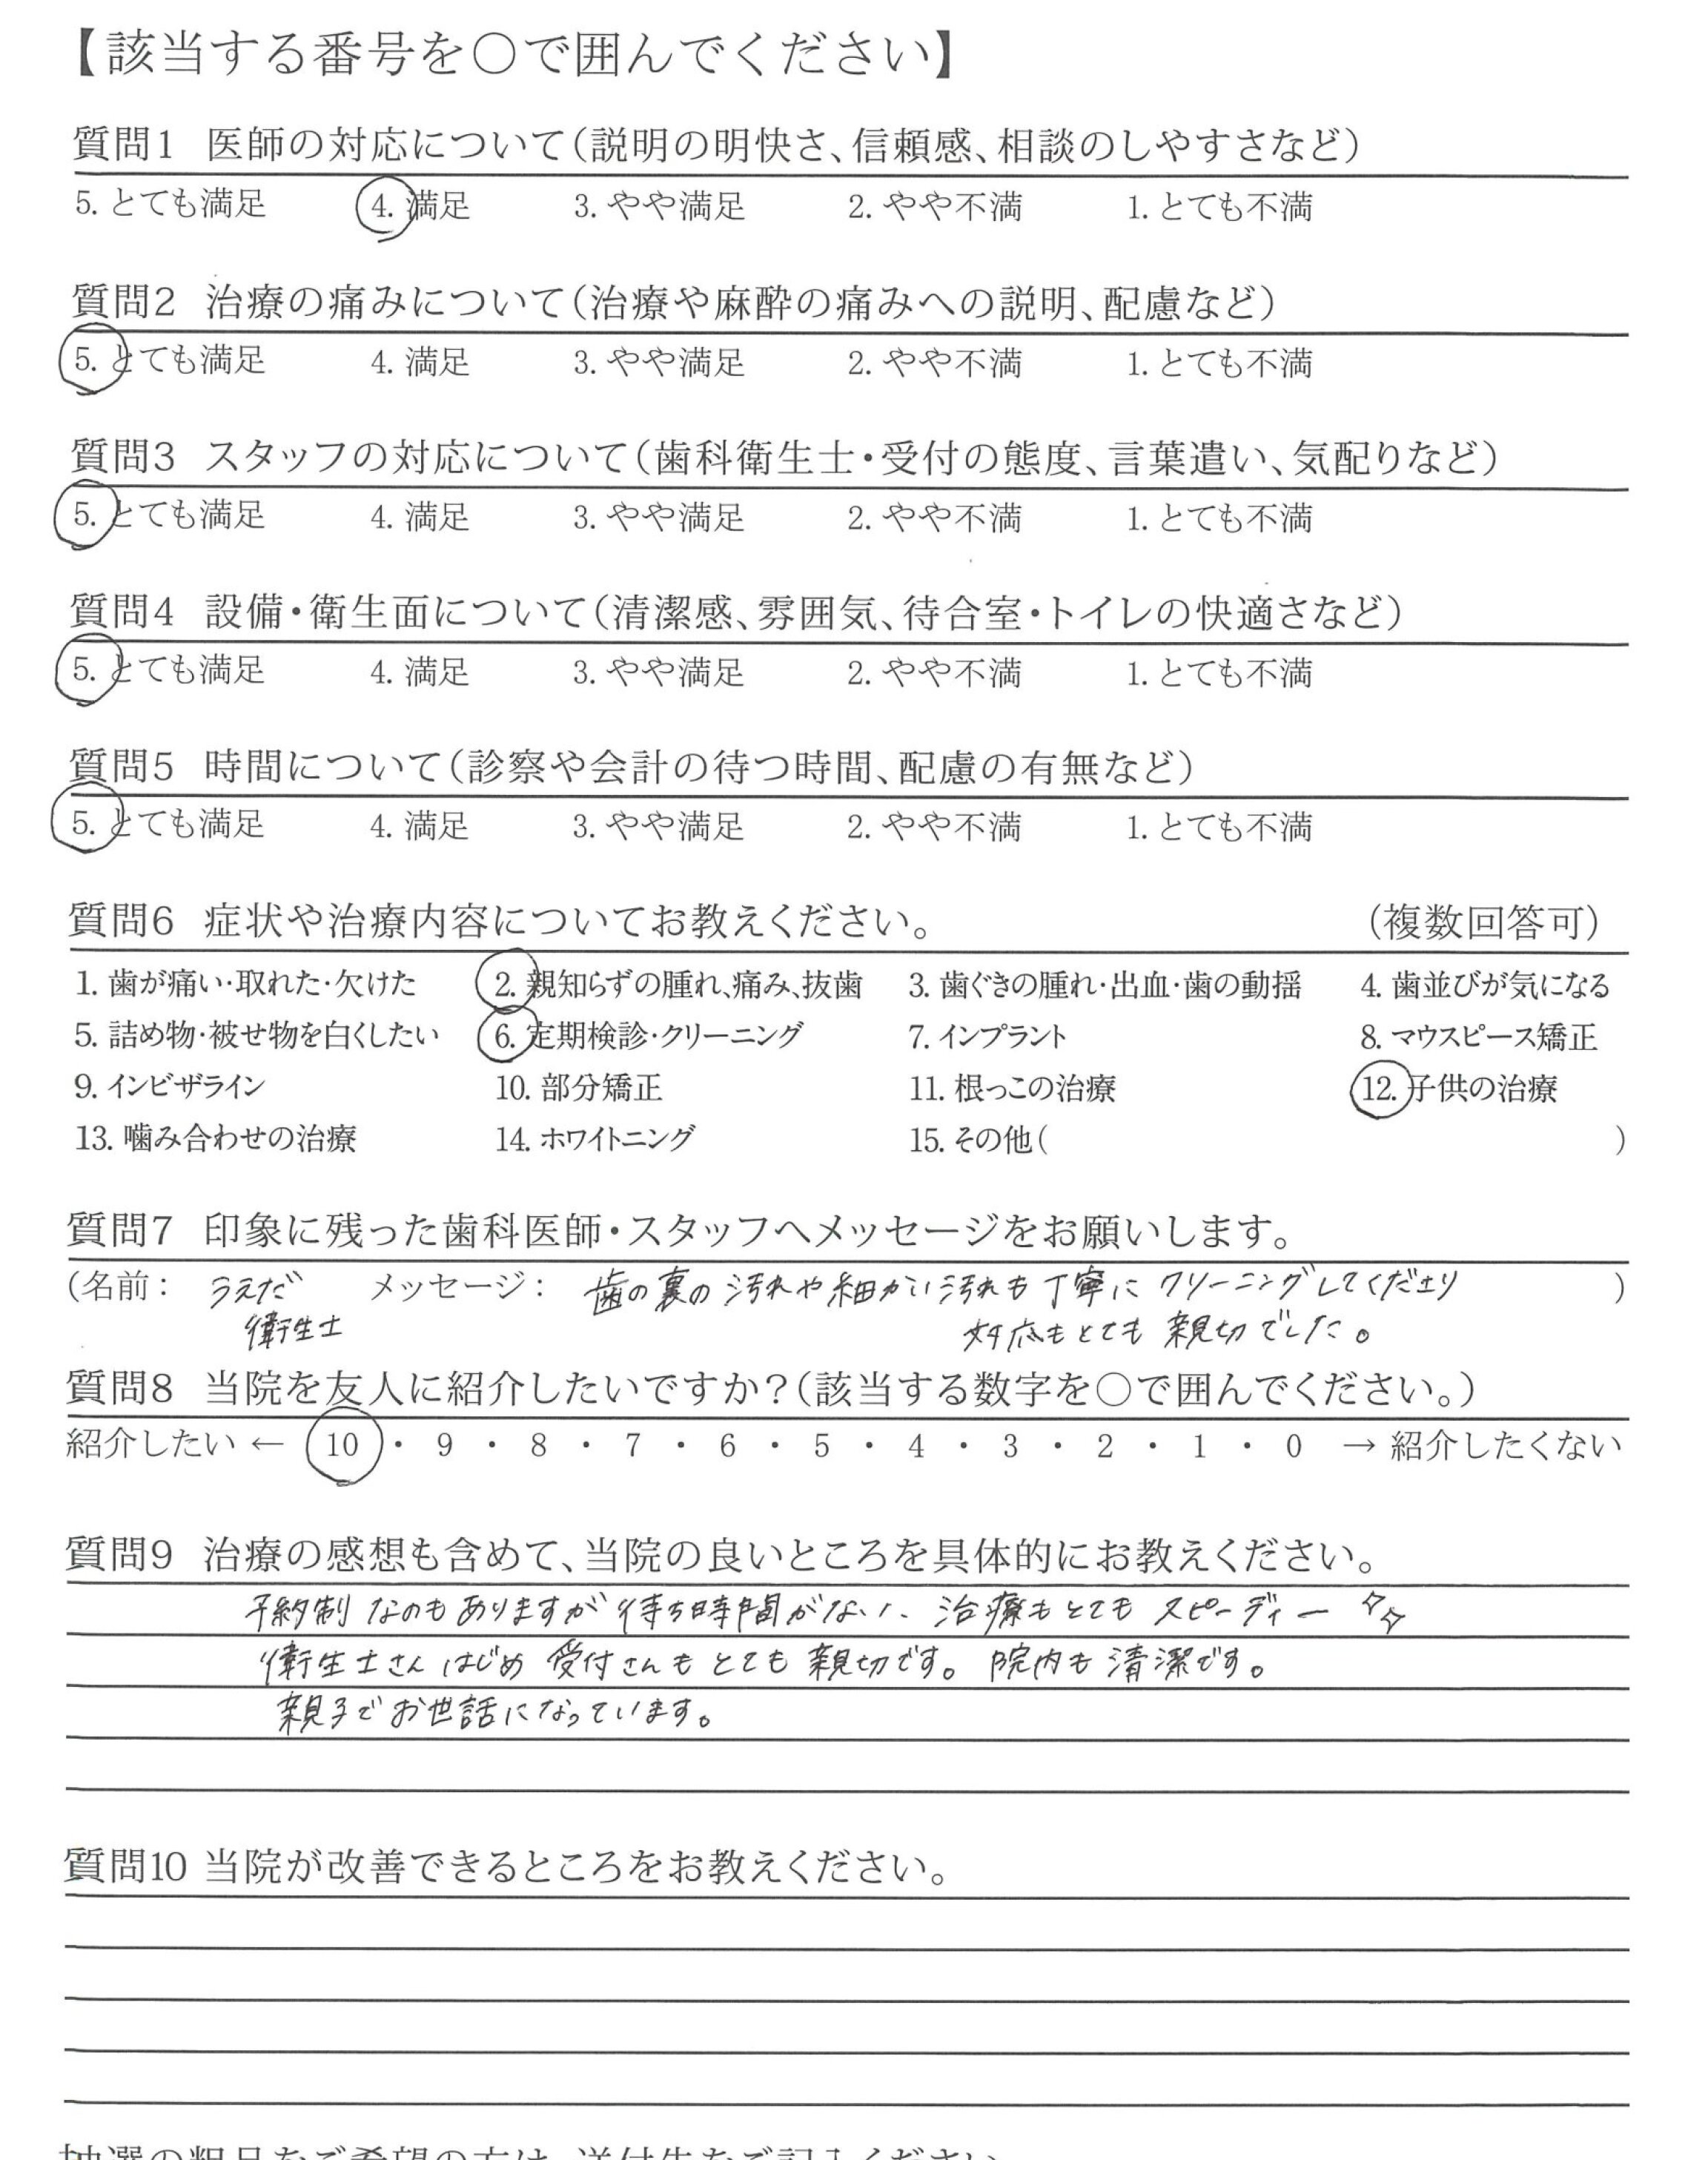 【該当する番号を○で囲んでください】
質問1 医師の対応について(説明の明快さ、信頼感、相談のしやすさなど)
5. とても満足 4. 満足 3. やや満足 2. やや不満 1. とても不満
質問2 治療の痛みについて(治療や麻酔の痛みへの説明、配慮など)
5. とても満足 4. 満足 3. やや満足 2. やや不満 1. とても不満
質問3 スタッフの対応について(歯科衛生士・受付の態度、言葉遣い、気配りなど)
5. とても満足 4. 満足 3. やや満足 2. やや不満 1. とても不満
質問4 設備・衛生面について(清潔感、雰囲気、待合室・トイレの快適さなど)
5. とても満足 4. 満足 3. やや満足 2. やや不満 1. とても不満
質問5 時間について(診察や会計の待つ時間、配慮の有無など)
5. とても満足 4. 満足 3. やや満足 2. やや不満 1. とても不満
質問6 症状や治療内容についてお教えください。 (複数回答可)
1. 歯が痛い・取れた・欠けた 2. 親知らずの腫れ、痛み、抜歯 3. 歯ぐきの腫れ・出血・歯の動揺 4. 歯並びが気になる
5. 詰め物・被せ物を白くしたい 6. 定期検診・クリーニング 7. インプラント 8. マウスピース矯正
9. インビザライン 10. 部分矯正 11. 根っこの治療 12. 子供の治療
13. 噛み合わせの治療 14. ホワイトニング 15. その他( )
質問7 印象に残った歯科医師・スタッフへメッセージをお願いします。
(名前: うえだ メッセージ: 歯の裏の汚れや細かい汚れも丁寧にクリーニングしてくださり )
衛生士 対応もとても親切でした。
質問8 当院を友人に紹介したいですか?(該当する数字を○で囲んでください。)
紹介したい ← 10 ・ 9 ・ 8 ・ 7 ・ 6 ・ 5 ・ 4 ・ 3 ・ 2 ・ 1 ・ 0 → 紹介したくない
質問9 治療の感想も含めて、当院の良いところを具体的にお教えください。
予約制なのもありますが待ち時間がない、治療もとてもスピーディー
衛生士さんはじめ受付さんもとても親切です。院内も清潔です。
親子でお世話になっています。
質問10 当院が改善できるところをお教えください。
抽選の粗品をご希望の方は、送付先をご記入ください